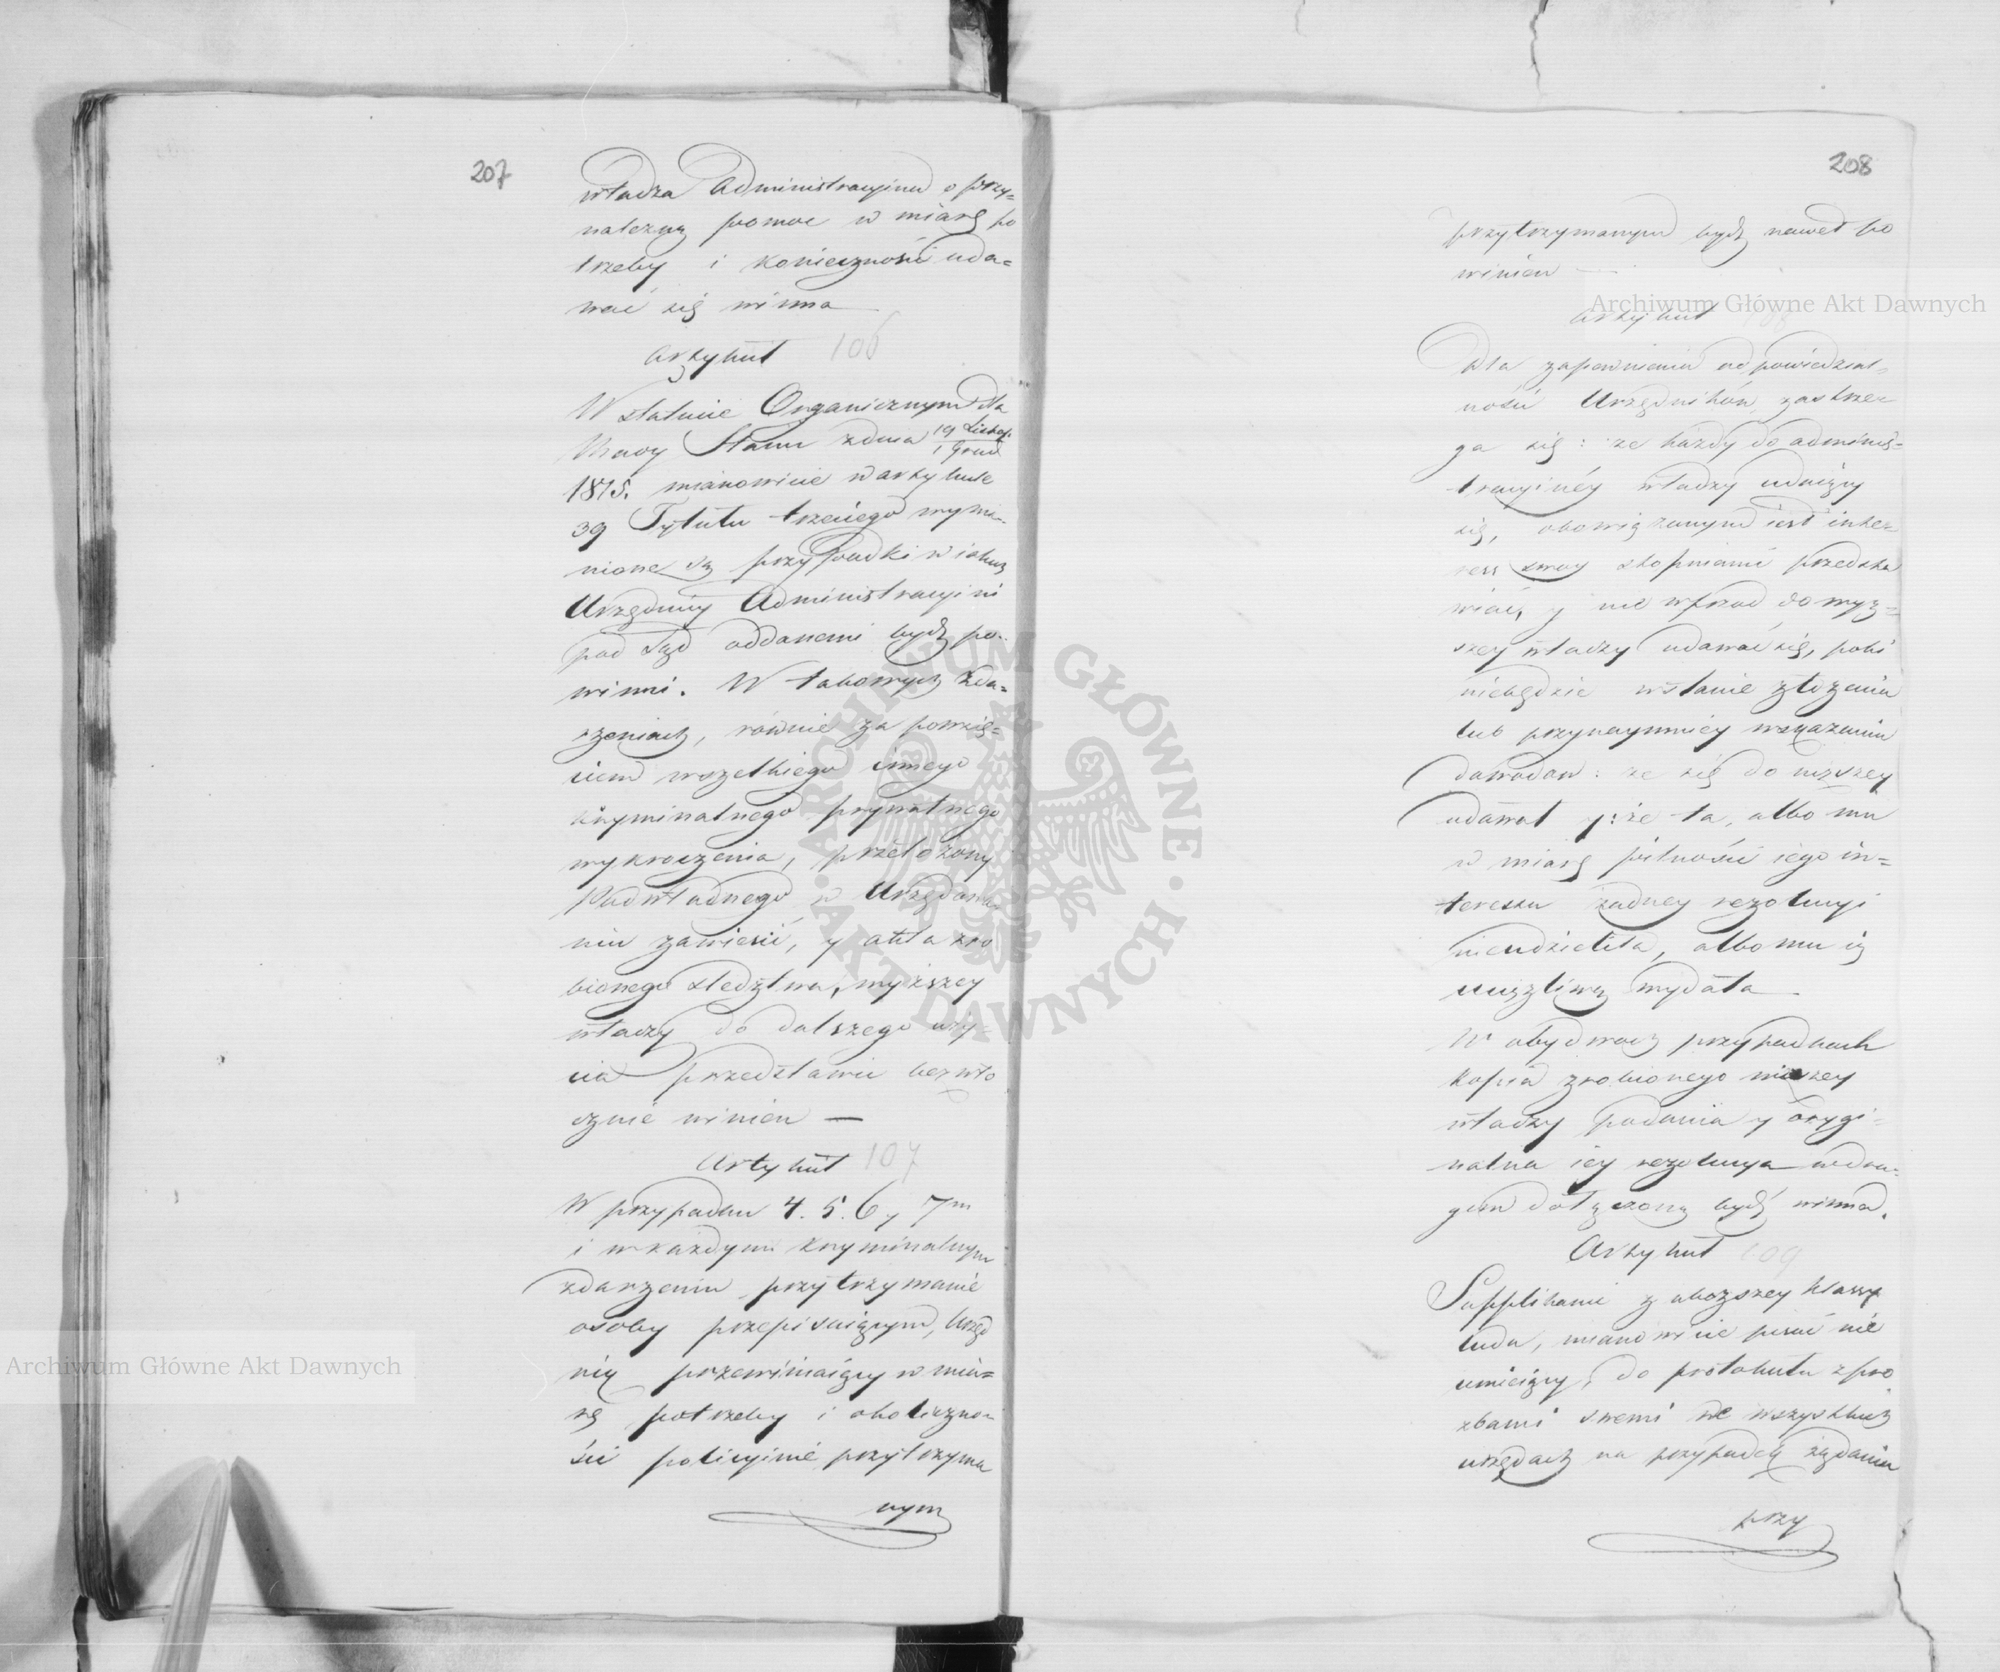 207
władza Administracyina o przy=
należną pomoc w miarę po
trzeby i konieczności uda=
wać się winna
Artykuł 106
W statucie Organicznym dla
Rady Stanu z dnia 19 Listop. / 1 Grud
1815. mianowicie w artykule
39 Tytułu trzeciego wymie=
nione są przypadki w iakich
Urzędnicy Administracyini
pod Sąd oddanemi bydź po=
winni. W takowych zda=
rzeniach, równie za powzię=
ciem wszelkiego innego
kryminalnego prywatnego
wykroczenia, przełożony
Podwładnego w Urzędowa=
niu zawiesić, y akta zro
bionego śledztwa, wyższey
władzy do dalszego uży=
cia przedstawić bezwło
cznie winien —
Artykuł 107
W przypadku 4. 5. 6 y 7m
i w każdym kryminalnym
zdarzeniu przytrzymanie
osoby przepisuiącym, Urzęd
nik przewiniaiący w mia=
rę potrzeby i okoliczno=
ści policyinie przytrzyma
nym
208
przytrzymanym bydź nawet po
winien —
Artykuł 108
Dla zapewnienia odpowiedzial=
ności Urzędników, zastrze
ga się: że każdy do adminis=
tracyinéy władzy udaiący
się, obowiązanym iest inte=
ress swoy stopniami przedsta
wiać, y nie wprzod do wyż=
szey władzy udawać się, poki
niebędzie wstanie złożenia
lub przynaymniey wskazania
dowodow: że się do niższey
udawał y: że ta, albo mu
w miarę pilności iego in=
teressu żadney rezolucyi
nieudzieliła, albo mu ią
uciążliwą wydała —
W obydwoch przypadkach
kopia zrobionego niższey
władzy podania y orygi=
nalna iey rezolucya wdru=
gim dołączoną bydź winna.
Artykuł 109
Supplikanci z uboższey klassy
ludu, mianowicie pisać nie
umieiący, do protokułu z pro
zbami swemi we wszystkich
urzędach na przypadek żądania
przy
Archiwum Główne Akt Dawnych
Archiwum Główne Akt Dawnych
ARCHIWUM GŁÓWNE · AKT DAWNYCH ·